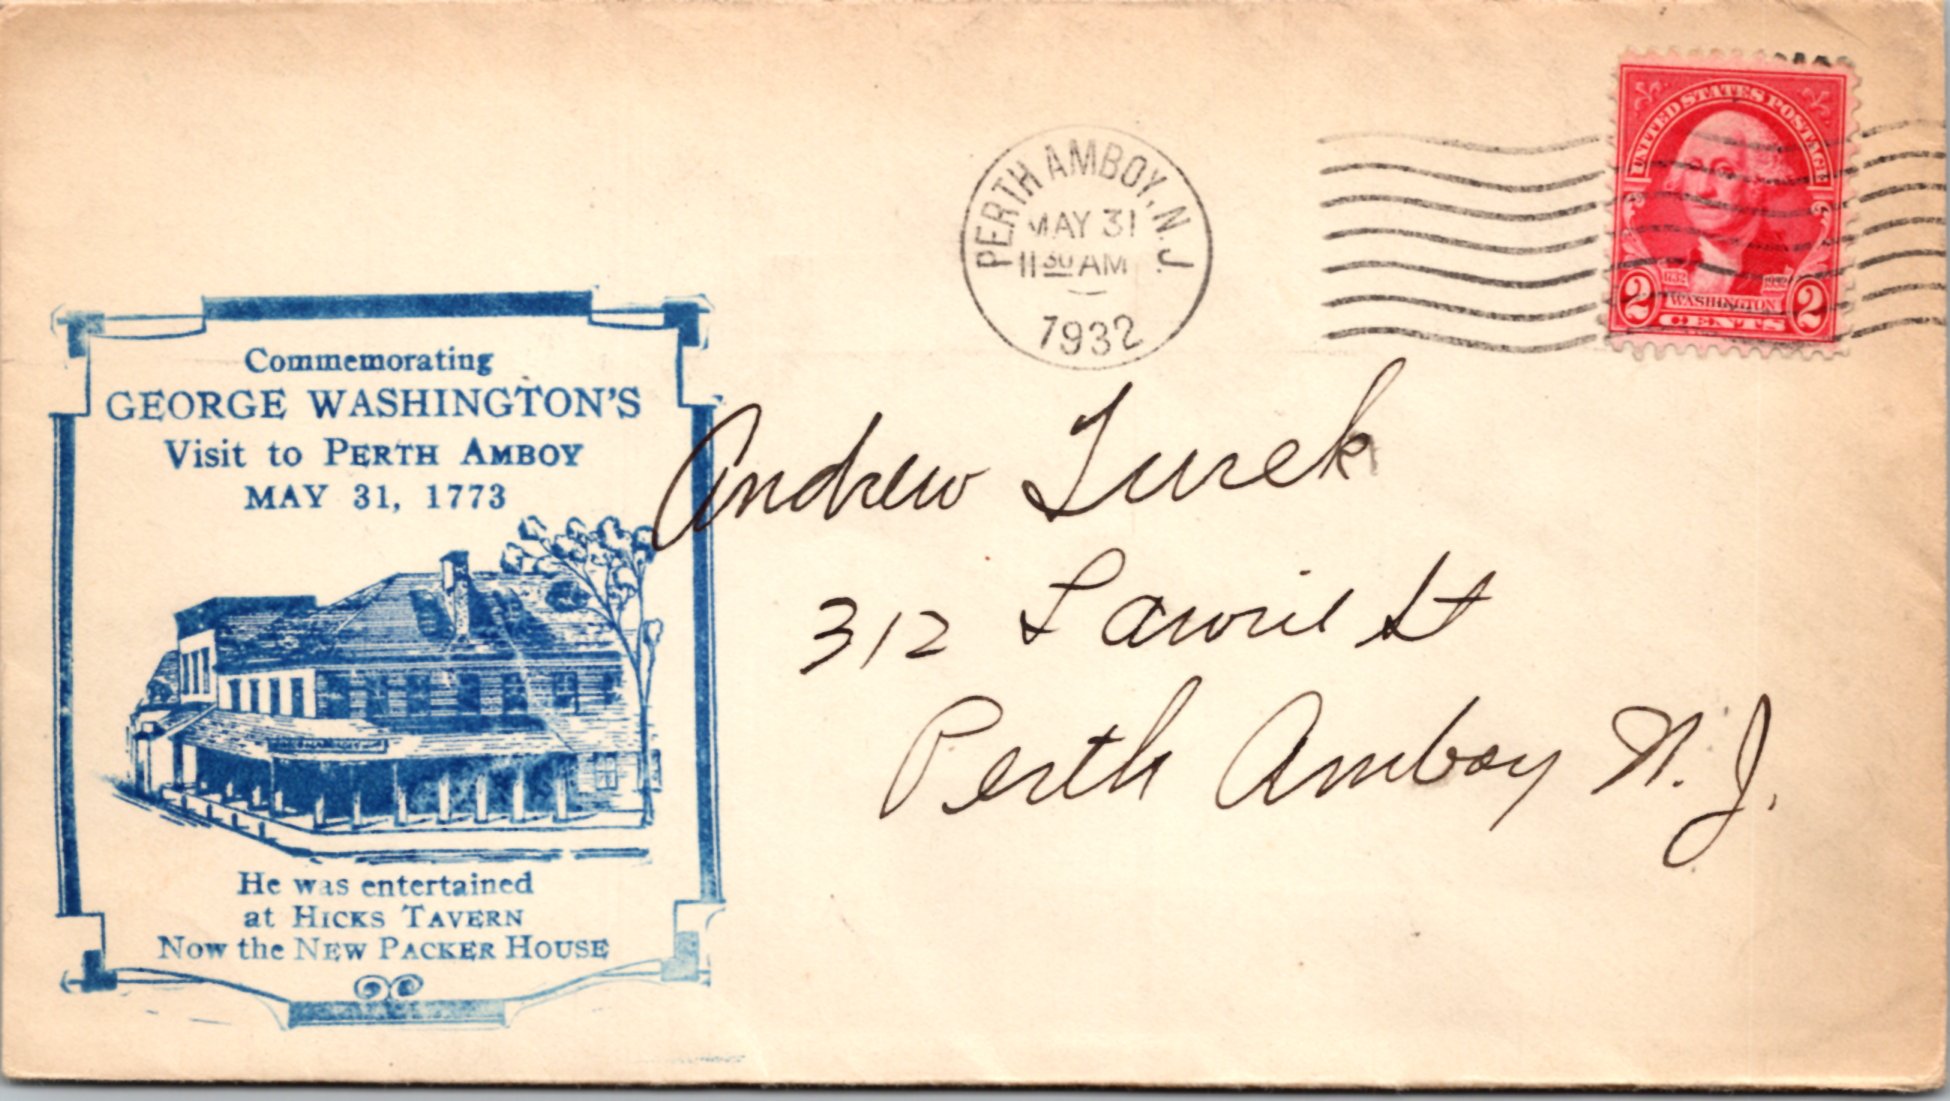 Commemorating
GEORGE WASHINGTON'S
Visit to PERTH AMBOY
MAY 31, 1773
He was entertained
at HICKS TAVERN
Now the NEW PACKER HOUSE
PERTH AMBOY, N.J.
MAY 31
11 30 AM
1932
UNITED STATES POSTAGE
1732 1932
2 WASHINGTON 2
CENTS
Andrew Turek
312 Lawrie St
Perth Amboy N.J.